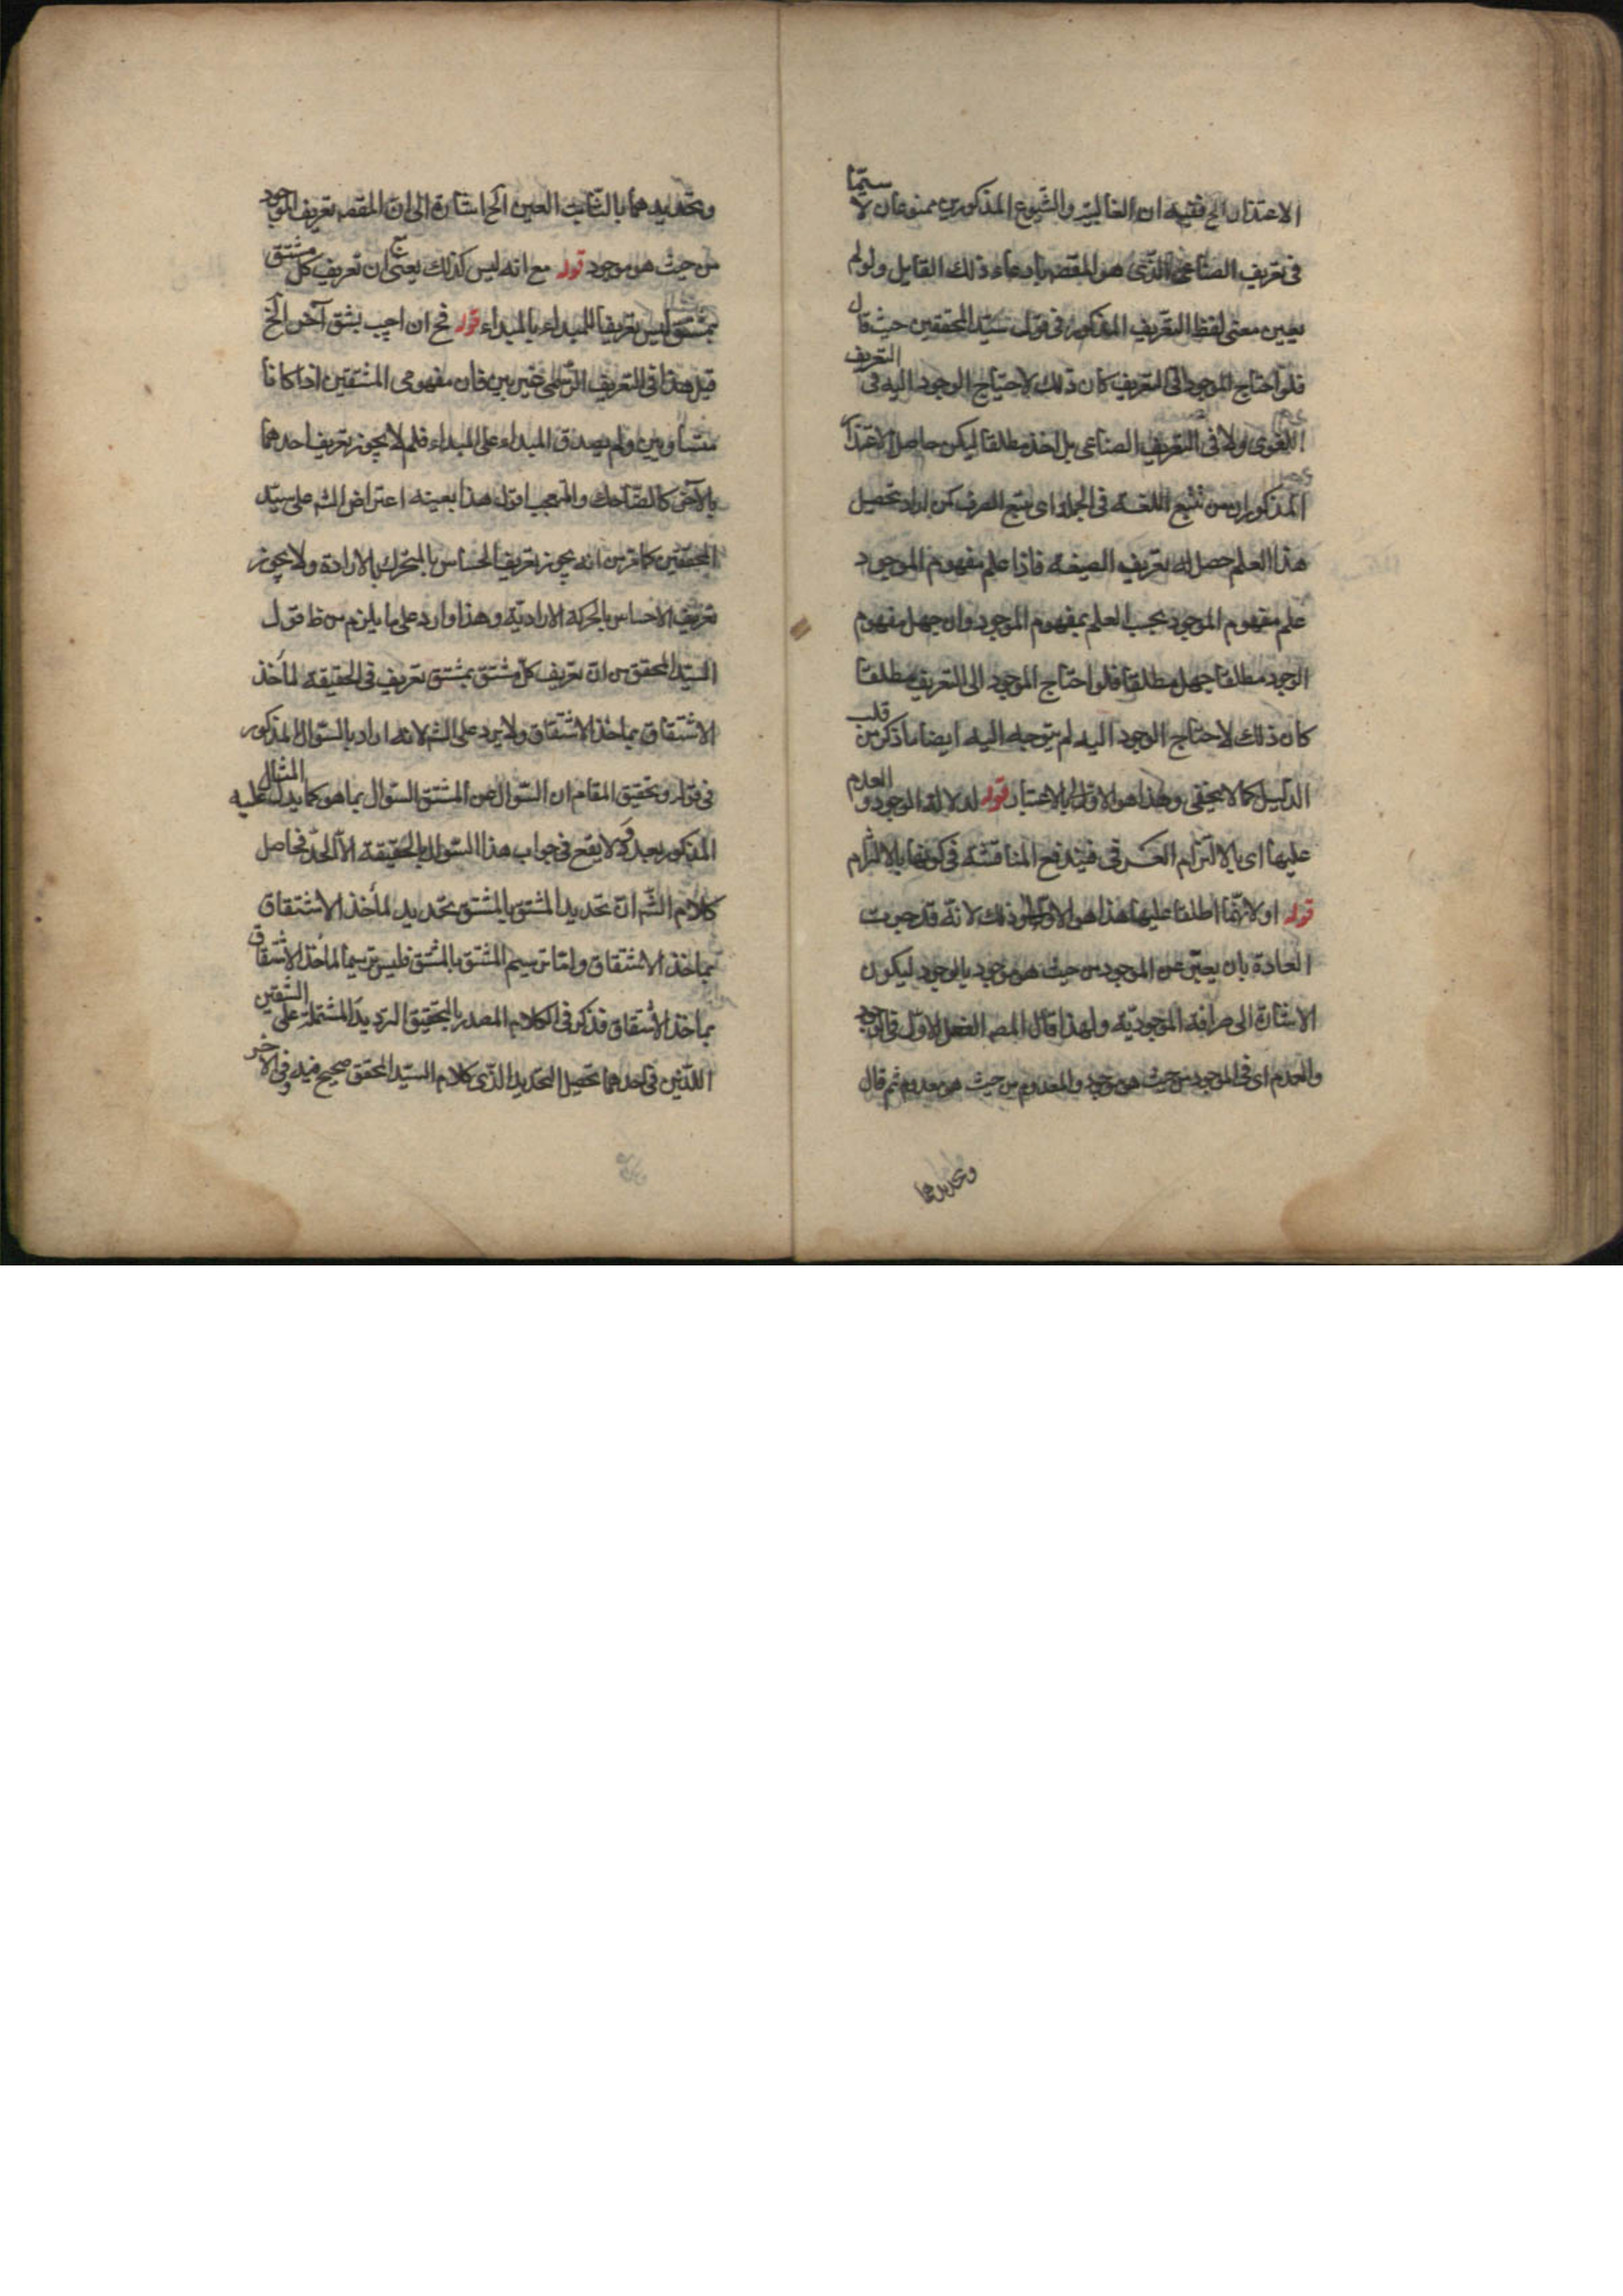 الاعتذار الخ ففيه ان الغالبية والشيوع المذكورين ممنوعان لا سيّما
فى تعريف الصناعى الذى هو المقصـ بادعاء ذلك القايل ولو لم
يعين معنى لفظ التعريف المذكور فى قول سيّد المحققين حيث قال
فلو احتاج الموجود الى التعريف كان ذلك لاحتياج الوجود اليه فى التعريف
اللغوى ولا فى التعريف الصناعى بل اخذ مطلقا ليكن حاصل الاعتذار
المذكور ان من تتبع اللغة فى الجملة اى تتبع الصرف كمن اراد تحصيل
هذا العلم حصل له تعريف الصيغة فاذا علم مفهوم الموجود
علم مفهوم الموجود بحسب العلم بمفهوم الموجود وان جهل مفهوم
الوجود مطلقا جهل مطلقا فلو احتاج الموجود الى التعريف مطلقا
كان ذلك لاحتياج الوجود اليه لم يتوجه اليه ايضا ما ذكر من قلب
الدليل كما لا يخفى وهذا هو الاولى بالاعتبار قوله لدلالة الوجود و العدم
عليها اى بالالتزام العرفى فيندفع المناقشة فى كونها بالالتزام
قوله او لانهما اطلقا عليها هذا هو الاولى وذلك لانه قد جرت
العادة بان يعبّر عن الموجود من حيث هو موجود بالوجود ليكون
الاشارة الى صرافة الموجوديّة ولهذا قال المصـ الفصل الاوّل فى الوجود
والعدم اى فى الموجود من حيث هو موجود والمعدوم من حيث هو معدوم ثم قال
وتحديدهما
وتحديدهما بالثابت العين الخ اشارة الى ان المقصـ تعريف الموجود
من حيث هو موجود قوله مع انه ليس كذلك يعنى ان تعريف كل مشتق
بمشتق ليس تعريفا للمبداء بالمبداء قوله فح ان اجيب بشق آخر الخ
قيل هذا فى التعريف الرسمى غير بين فان مفهومى المشتقين اذا كانا
متساويين ولم يصدق المبداء على المبداء فلم لا يجوز تعريف احدهما
بالآخر كالضاحك والمتعجب اقول هذا بعينه اعتراض الشـ على سيّد
المحققين كما مر من انه يجوز تعريف الحساس بالمتحرك بالارادة ولا يجوز
تعريف الاحساس بالحركة الاراديّة وهذا وارد على ما يلزم من ظ قول
السيّد المحقق من ان تعريف كل مشتق بمشتق تعريف فى الحقيقة لمأخذ
الاشتقاق بماخذ الاشتقاق ولا يرد على الشـ لانه اراد بالسّوال المذكور
فى قوله وتحقيق المقام ان السّوال عن المشتق السّوال بما هو كما يدل عليه المثال
المذكور بعده ولا يقع فى جواب هذا السّوال بالحقيقة الّا الحدّ فحاصل
كلام الشـ ان تحديد المشتق بالمشتق تحديد لمأخذ الاشتقاق
بماخذ الاشتقاق وامّا ترسيم المشتق بالمشتق فليس ترسيما لمأخذ الاشتقاق
بماخذ الاشتقاق فذكر فى الكلام المصدر بالتحقيق الترديد المشتملة على الشقين
اللذين فى احدهما تحصيل التحديد الذى كلام السيّد المحقق صحيح فيه وفى الآخر